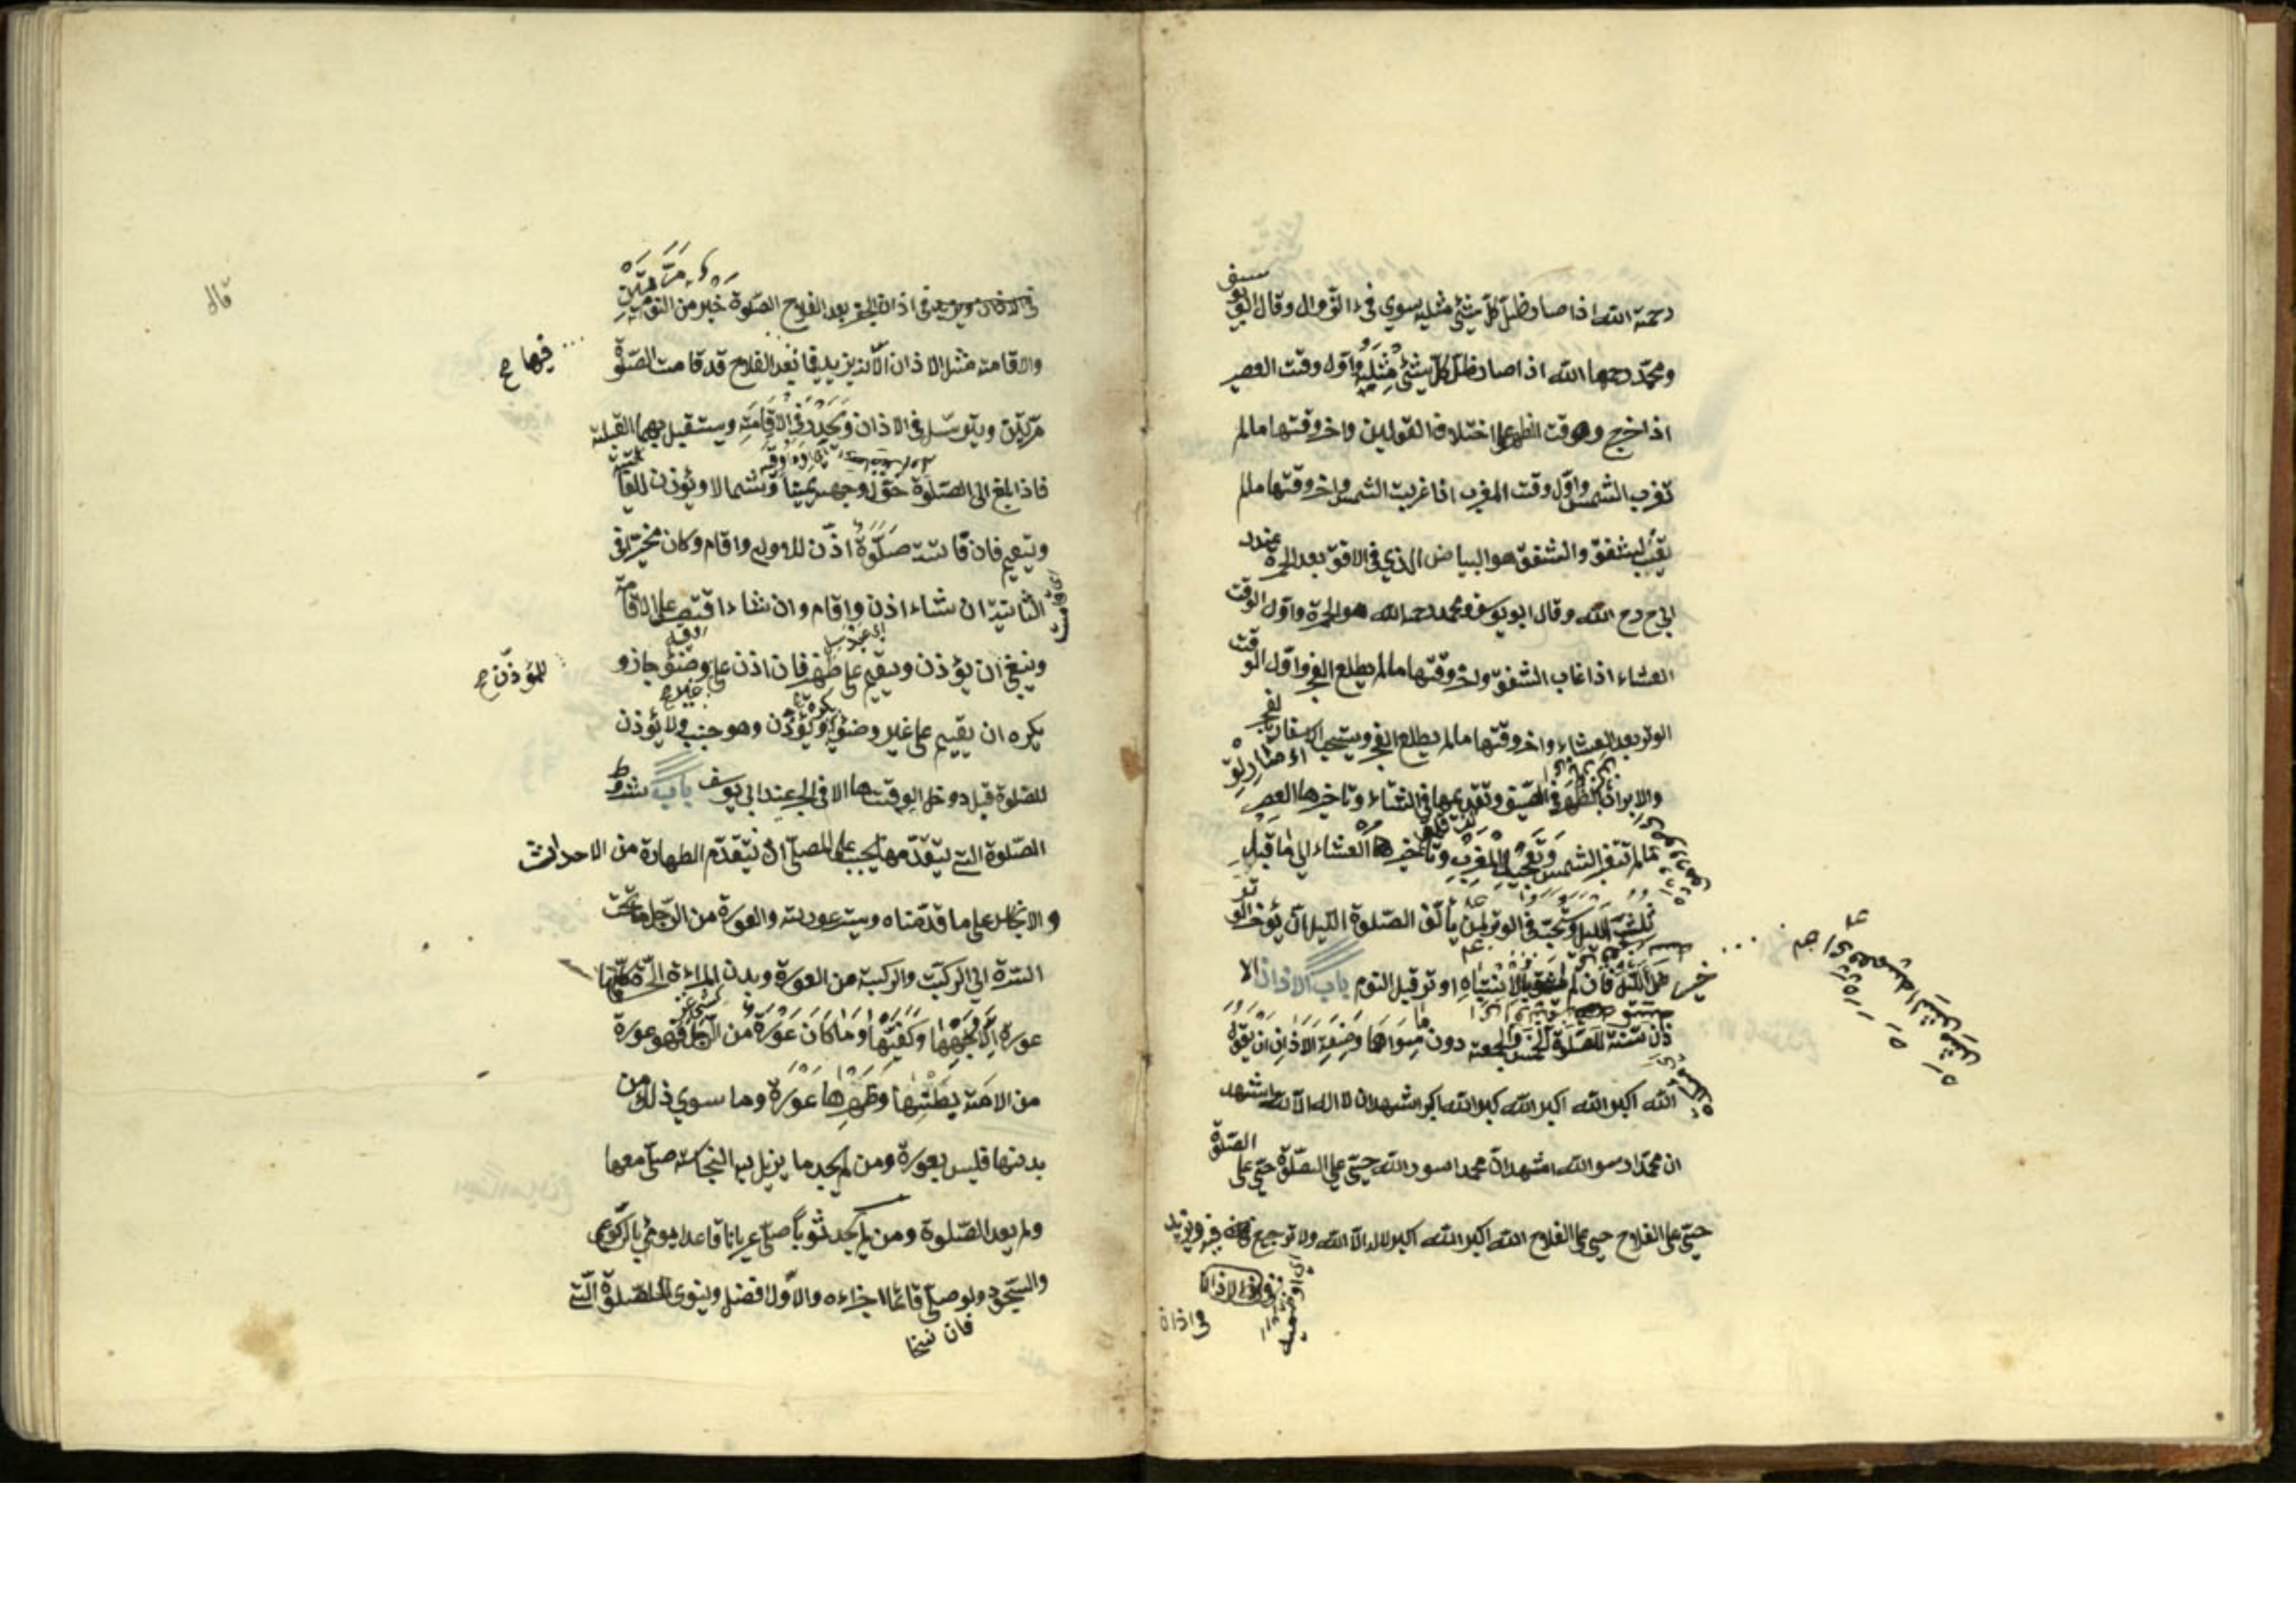 رحمة الله اذا صار ظل كل شئ مثليه سوي فئ الزوال وقال ابو يوسف
ومحمد رحمهما الله اذا صار ظل كل شئ مثله واول وقت العصر
اذا خرج وقت الظهر على اختلاف القولين واخر وقتها مالم
تغرب الشمس واول وقت المغرب اذا غربت الشمس واخر وقتها مالم
يغب الشفق والشفق هو البياض الذي في الافق بعد الحمرة عند
ابي ح رح الله وقال ابو يوسف ومحمد رحمه الله هو الحمرة واول الوقت
العشاء اذا غاب الشفق واخر وقتها مالم يطلع الفجر واول الوقت
الوتر بعد العشاء واخر وقتها مالم يطلع الفجر ويستحب الاسفار بالفجر
والابراد بالظهر في الصيف وتقديمها في الشتاء وتاخيرها العصر
مالم تتغير الشمس وتعجيل المغرب وتاخير العشاء الي ما قبل
ثلث الليل ويستحب في الوتر لمن يألف الصلوة الليل ان يؤخر الوتر
الليل فان لم يثق بالانتباه اوتر قبل النوم باب الاذان الا
ذان سنة للصلوة الخمس والجمعة دون ما سواها وصفة الاذان ان يقول
الله اكبر الله اكبر الله كبر الله اكبر اشهد ان لا اله الا الله اشهد
ان محمدا رسو الله اشهد ان محمدا رسو الله حي على الصلوة حي على الصلوة
حي على الفلاح حي على الفلاح الله اكبر الله اكبر لا اله الا الله ولا ترجيع فيه ويزيد
في اذان
في اذان الفجر بعد الفلاح الصلوة خير من النوم مرتين
والاقامة مثل الاذان الا انه يزيد فيها بعد الفلاح قد قامت الصلوة
فيها ح
مرتين ويترسل في الاذان ويحدر في الاقامة ويستقبل بهما القبلة
فاذا بلغ الى الصلوة حول وجهه يمينا وشمالا ويؤذن للفائتة
ويقيم فان فاتته صلوة اذن للاولي واقام وكان مخيرا في
الثانية ان شاء اذن واقام وان شاء اقتصر على الاقامة
وينبغي ان يؤذن ويقيم على طهر فان اذن على وضوء جاز و
للمؤذن ح
يكره ان يقيم على غير وضوء ويؤذن وهو جنب ولا يؤذن
للصلوة قبل دوخل الوقتها الا في الفجر عند ابي يوسف باب شروط
الصلوة التي يتقدمها يجب على المصلي ان يتقدم الطهارة من الاحداث
و الانجاس على ما قدمناه ويستر عورته والعورة من الرجل ما تحت
السرة الى الركبة والركبة من العورة وبدن المراءة الحرة كلها
عورة الا وجهها وكفيها وما كان عورة من الرجل فهو عورة
من الامة بطنها وظهرها عورة وما سوي ذلك من
بدنها فليس بعورة ومن لم يجد ما يزيل به النجاسة صلى معها
ولم يعد الصلوة ومن لم يجد ثوباً صلى عريانا قاعدا يومئ بالركوع
والسجود ولو صلى قائما اجزاءه والاول افضل وينوى للصلوة التي
قال